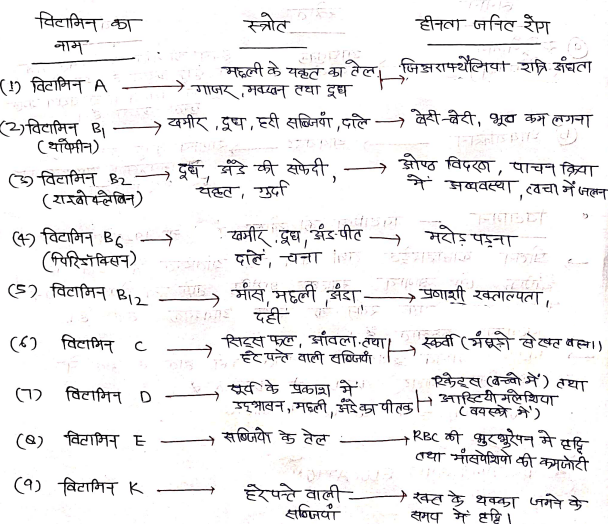 विटामिन का नाम    स्त्रोत    हीनता जनित रोग
(1) विटामिन A → मछली के यकृत का तेल गाजर, मक्खन तथा दूध → जिअराफ्थैल्मिया रात्रि अंधता
(2) विटामिन B₁ (थायमीन) → खमीर, दूध, हरी सब्जियां, दाले → बेरी-बेरी, भूख कम लगना
(3) विटामिन B₂ (राइबोफ्लेविन) → दूध, अंडे की सफेदी, यकृत, गुर्दा → ओष्ठ विदरण, पाचन क्रिया में अव्यवस्था, त्वचा में जलन
(4) विटामिन B₆ (पिरिडॉक्सिन) → खमीर, दूध, अंड-पीत दाले, चना → मरोड़ पड़ना
(5) विटामिन B₁₂ → मांस, मछली, अंडा, दही → प्रणाशी रक्ताल्पता,
(6) विटामिन C → सिट्रस फल, आंवला तथा हरे पत्ते वाली सब्जियाँ → स्कर्वी (मसूड़ो से रक्त बहना)
(7) विटामिन D → सूर्य के प्रकाश में उद्भासन, मछली, अंडे का पीतक → रिकेट्स (बच्चो में) तथा आस्टियोमलेशिया (वयस्को में)
(8) विटामिन E → सब्जियो के तेल → RBC की भुरभुरेपन में वृद्धि तथा मांसपेशियो की कमजोरी
(9) विटामिन K → हरे पत्ते वाली सब्जियाँ → रक्त के थक्का जमने के समय में वृद्धि।